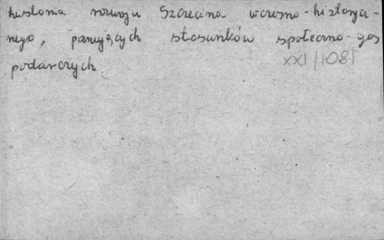 historia rozwoju Szczecina wczesno-historycz-
nego, panujących stosunków społeczno-gos
podarczych
XXI/1081